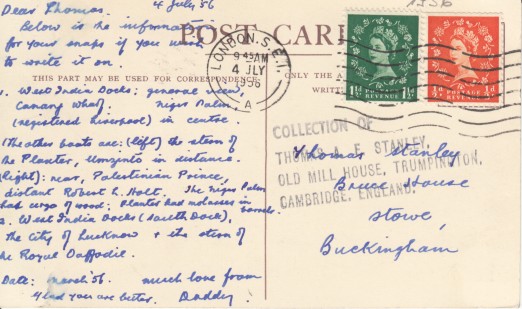 Dear Thomas. 4 July 56
Below is the information
for your snaps if you wish
to write it on.
POST CARD
THIS PART MAY BE USED FOR CORRESPONDENCE
ONLY THE A
WRITT
1. West India Docks; general view,
Canary Wharf. Niger Palm
(registered Liverpool) in centre.
(The other boats are: (left) the stern of
the Planter, Umgeni in distance.
(Right): near, Palestinian Prince,
distant Robert L. Holt. The Niger Palm
had cargo of wood; Planter had molasses in
barrels.
2. West India Docks (South Dock),
the City of Lucknow & the stern of
the Royal Daffodil.
Date: March '56. much love from
Glad you are better. Daddy.
LONDON. S.E.1.
9 45 AM
4 JLY
1956
A
1½D POSTAGE REVENUE 1½D
½D POSTAGE REVENUE ½D
1956
COLLECTION OF
THOMAS A. E. STANLEY,
OLD MILL HOUSE, TRUMPINGTON,
CAMBRIDGE, ENGLAND.
Thomas Stanley
Bruce House
Stowe,
Buckingham